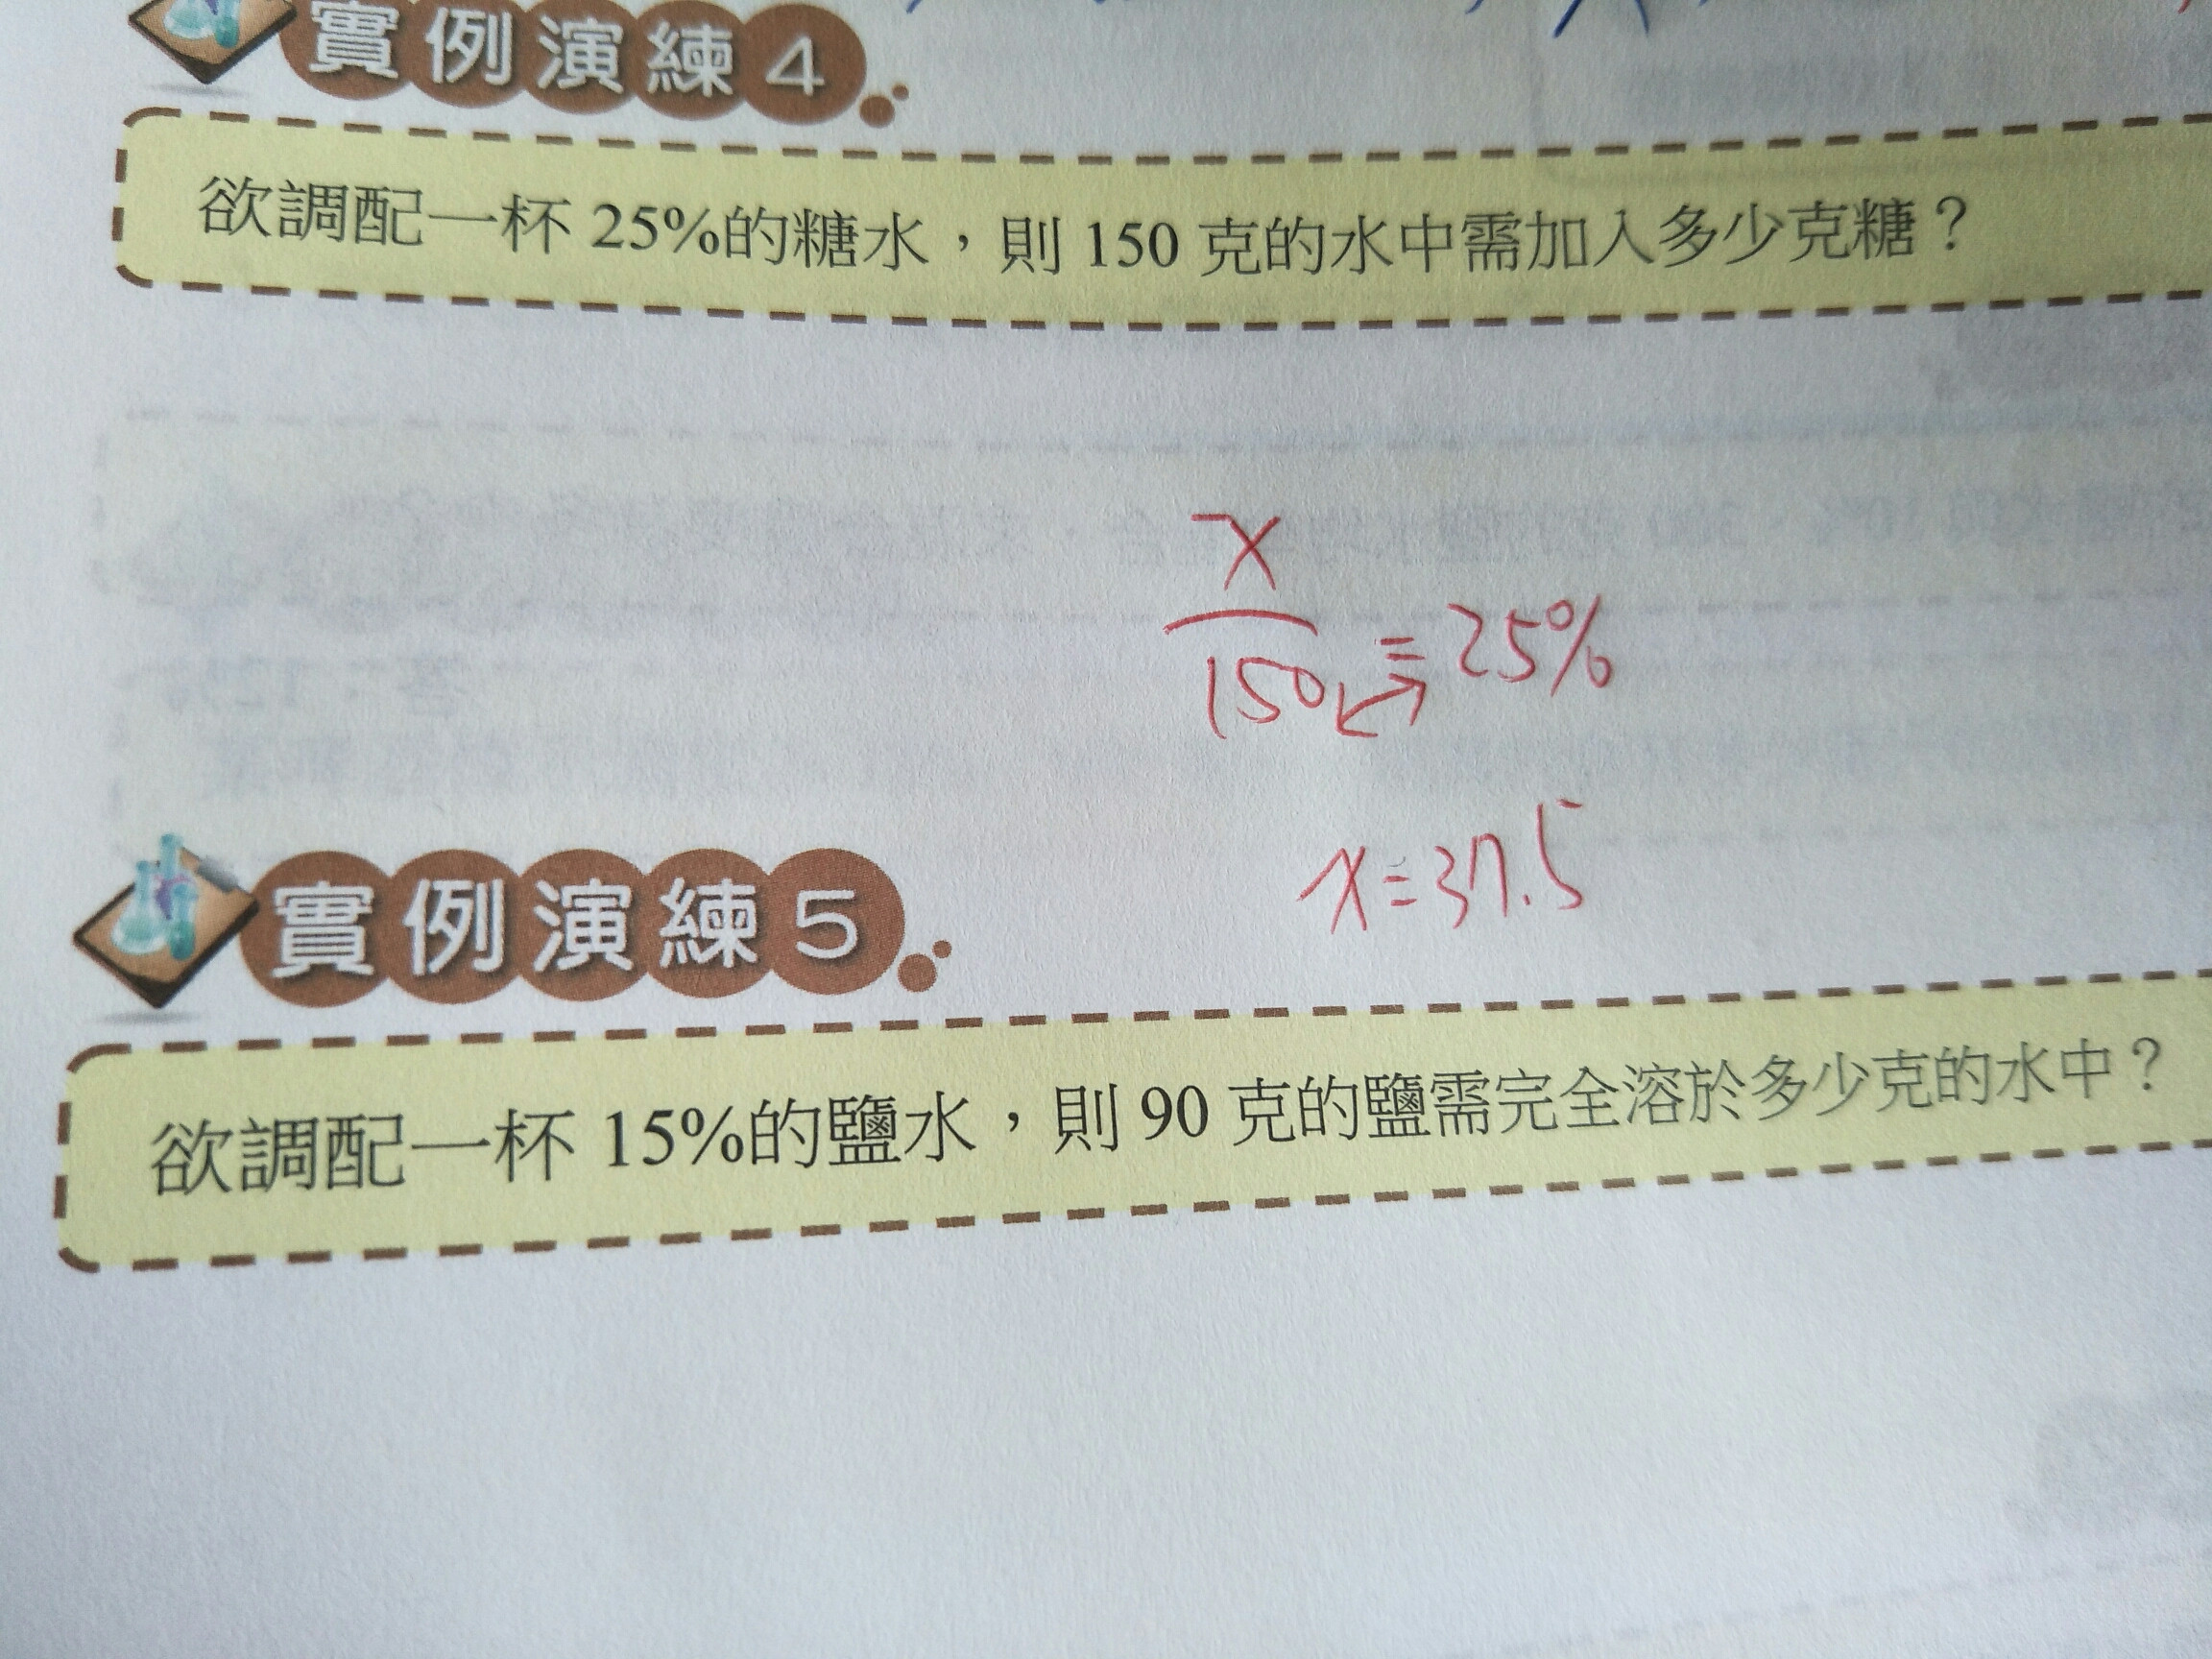 實例演練4
欲調配一杯 25%的糖水，則 150 克的水中需加入多少克糖？
x
150 = 25%
x = 37.5
實例演練5
欲調配一杯 15%的鹽水，則 90 克的鹽需完全溶於多少克的水中？